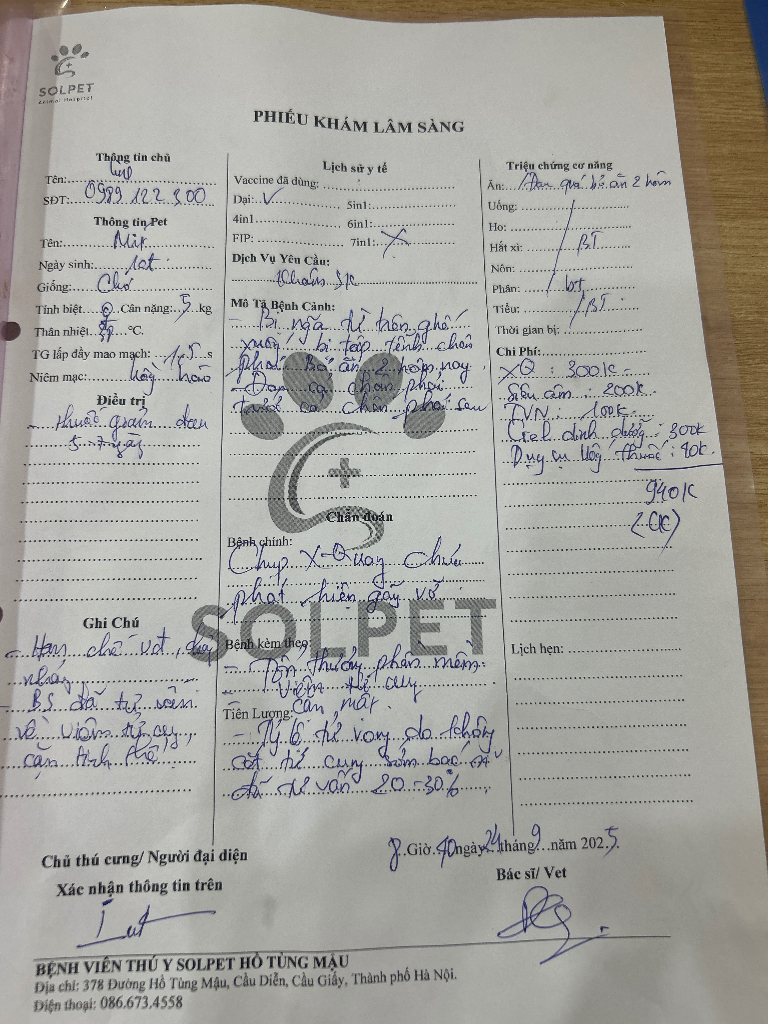 SOLPET
Animal Hospital
PHIẾU KHÁM LÂM SÀNG
Thông tin chủ
Tên:
SĐT: 0989 122 300
Thông tin Pet
Tên: Mix
Ngày sinh: 10t
Giống: Chó
Tính biệt Cân nặng: 5 kg
Thân nhiệt: °C.
TG lấp đầy mao mạch: 1,5 s
Niêm mạc: hồng hào
Điều trị
- thuốc giảm đau
5-7 ngày
Ghi Chú
- Hạn chế vđ, chạy
nhảy
- BS đã tư vấn
về viêm tử cung,
cần tính thể
Lịch sử y tế
Vaccine đã dùng:
Dại: 5in1:
4in1 6in1:
FIP: 7in1: X
Dịch Vụ Yêu Cầu:
Khám SK
Mô Tả Bệnh Cảnh:
- Bị ngã từ trên ghế
xuống bị tập tễnh chân
phải. Bỏ ăn 2 hôm nay
- Đau cả chân phải
trước cả chân phải sau
Chẩn đoán
Bệnh chính:
Chụp X-Quang chưa
phát hiện gãy vỡ
SOLPET
Bệnh kèm theo:
- Tổn thương phần mềm.
- Viêm tử cung
Tiên Lượng: cân nhắc
- Tỷ lệ tử vong do không
cắt tử cung sớm bác sĩ
đã tư vấn 20-30%
Triệu chứng cơ năng
Ăn: Đau quá bỏ ăn 2 hôm
Uống:
Ho:
Hắt xì: BT
Nôn:
Phân: bt
Tiểu: BT
Thời gian bị:
Chi Phí:
XQ : 300K
Siêu âm : 200K
TVN : 100K
Gel dinh dưỡng : 300K
Dụng cụ uống thuốc : 40K.
940K
(CK)
Lịch hẹn:
8 Giờ 40 ngày 24 tháng 9 năm 2025.
Chủ thú cưng/ Người đại diện
Xác nhận thông tin trên
Bác sĩ/ Vet
BỆNH VIỆN THÚ Y SOLPET HỒ TÙNG MẬU
Địa chỉ: 378 Đường Hồ Tùng Mậu, Cầu Diễn, Cầu Giấy, Thành phố Hà Nội.
Điện thoại: 086.673.4558